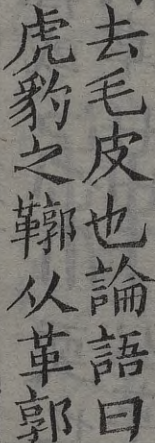 去毛皮也論語曰
虎豹之鞹从革郭